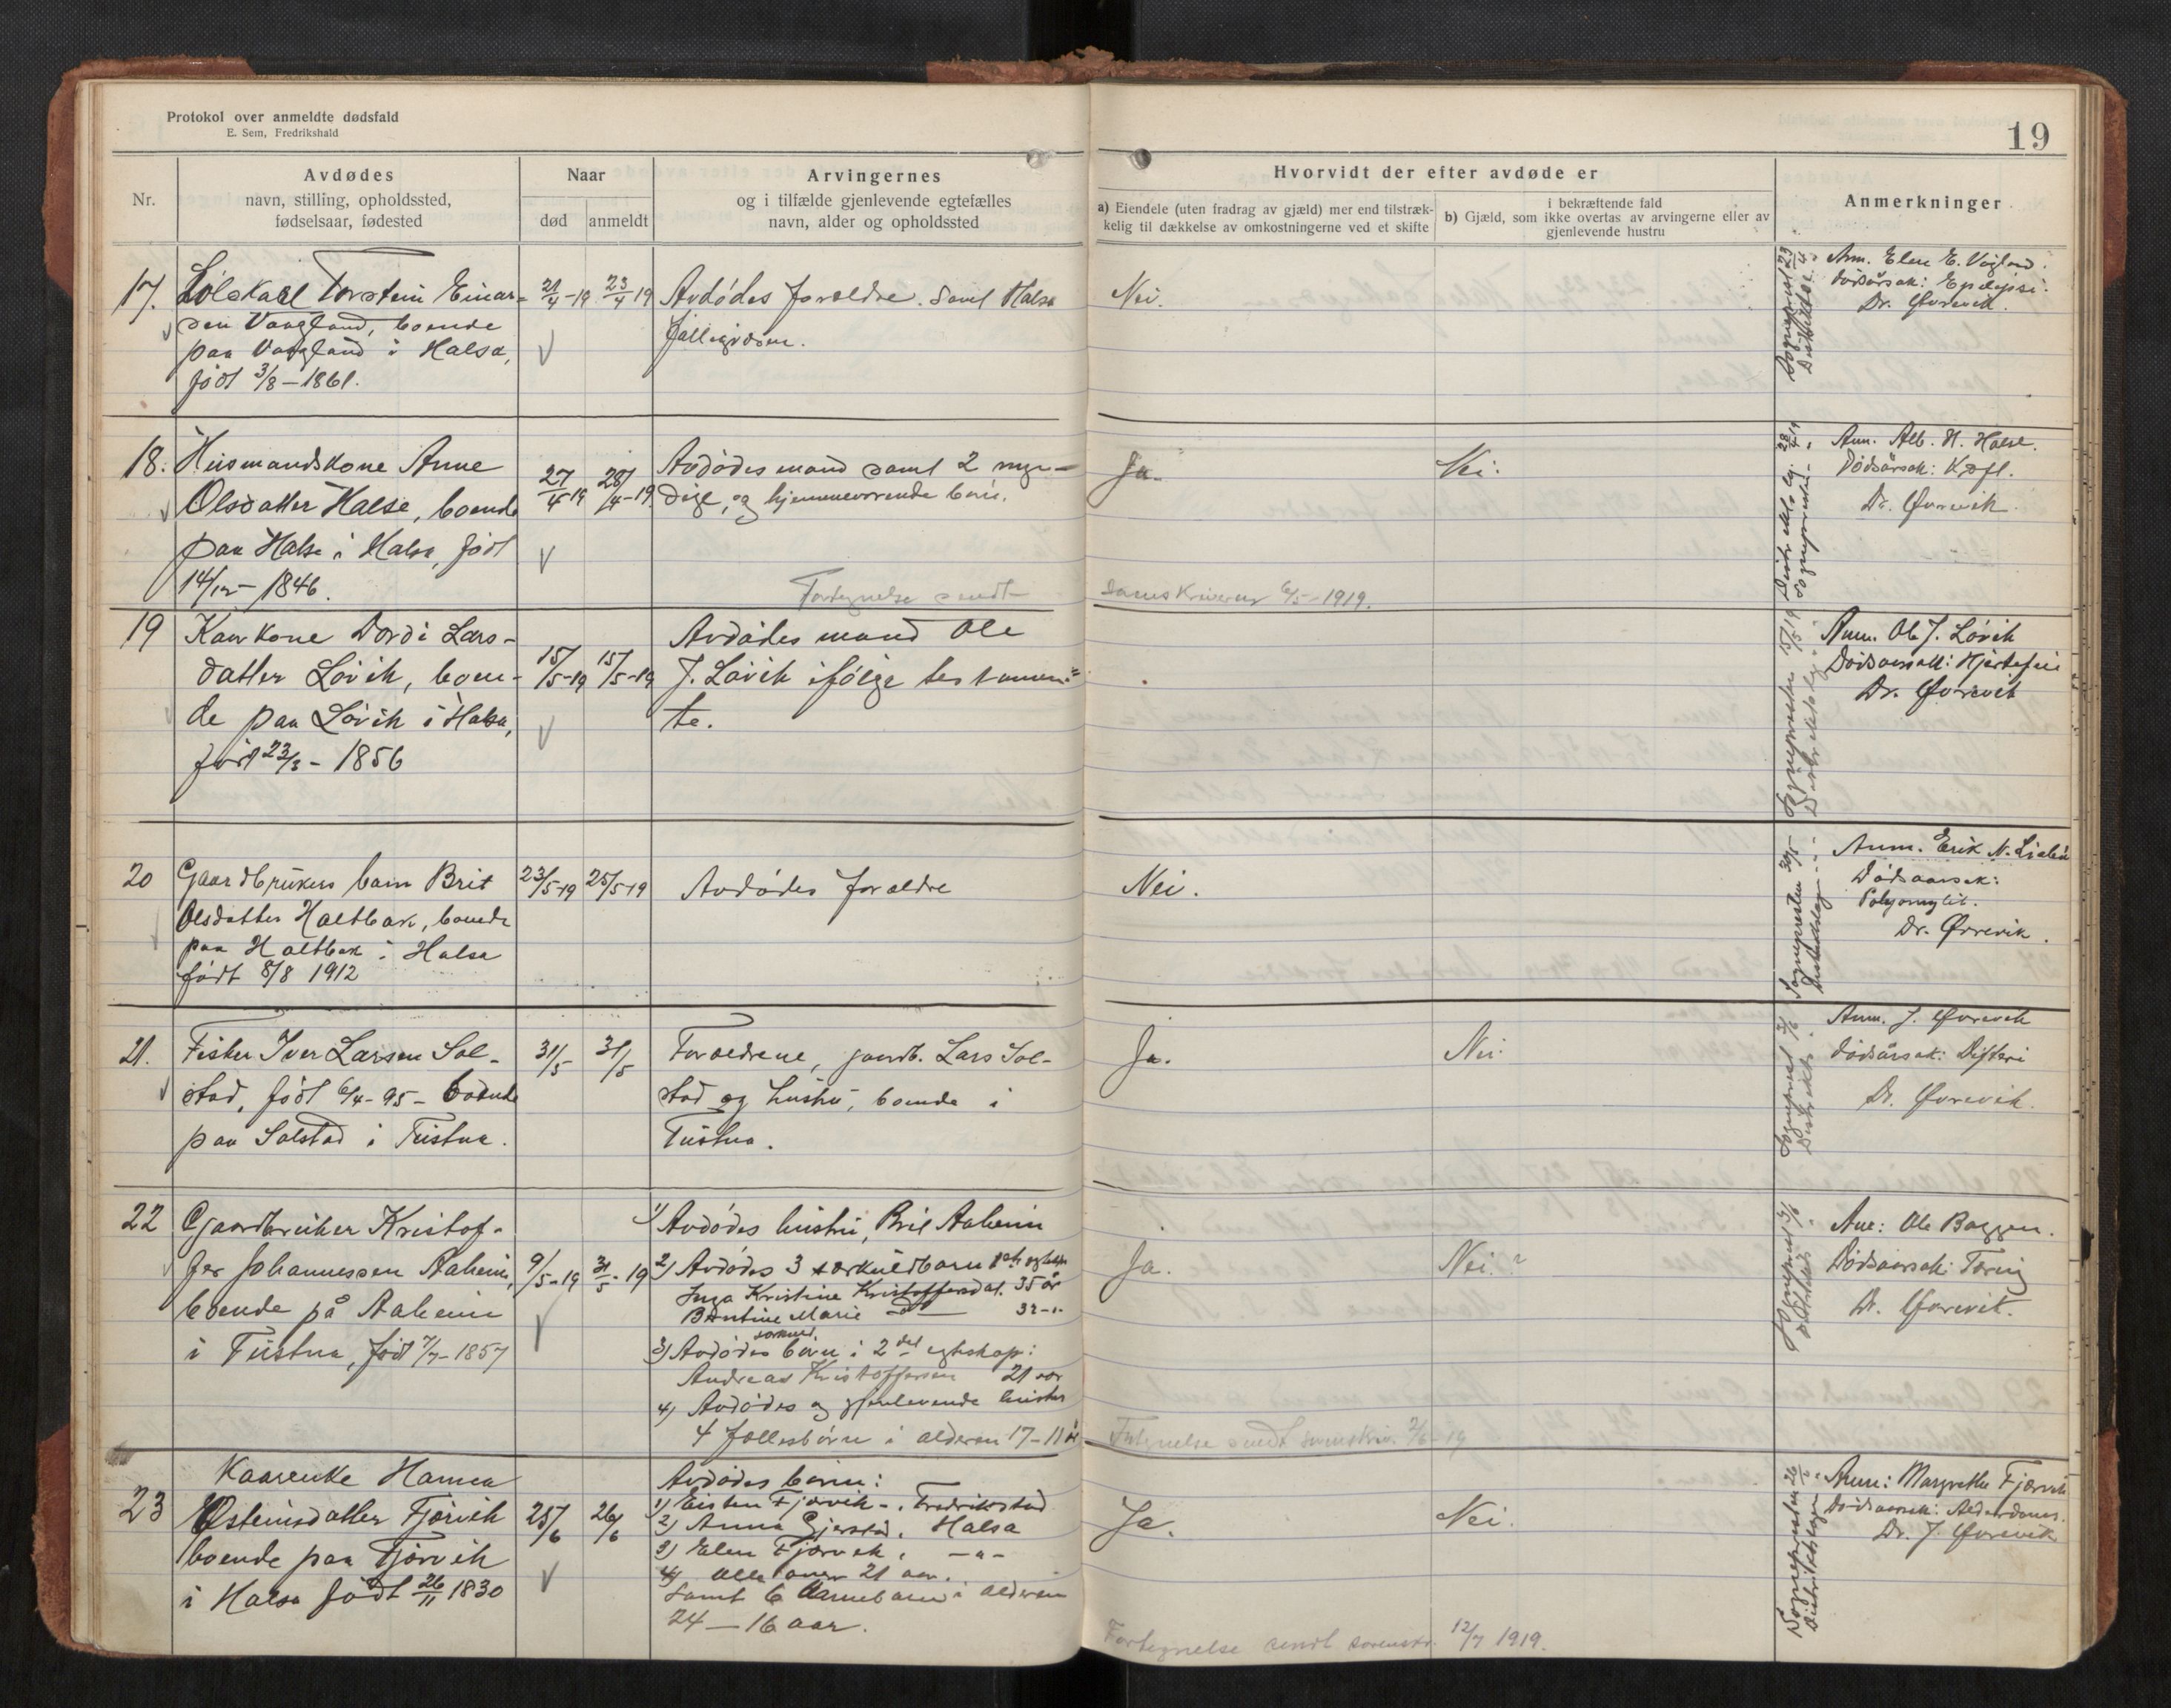 Protokol over anmeldte dødsfald
E. Sem, Fredrikshald
19
Nr.
Avdødes
navn, stilling, opholdssted,
fødselsaar, fødested
Naar
død
anmeldt
Arvingernes
og i tilfælde gjenlevende egtefælles
navn, alder og opholdssted
Hvorvidt der efter avdøde er
a) Eiendele (uten fradrag av gjæld) mer end tilstræk-
kelig til dækkelse av omkostningerne ved et skifte
i bekræftende fald
b) Gjæld, som ikke overtas av arvingerne eller av
gjenlevende hustru
Anmerkninger
17.
Torstein Einar-
sen Vaagland, boende
paa Vaagland i Halsa,
født 3/8-1861.
21/4-19
23/4 19
Avdødes forældre. Samt Halsa
fattigvæsen.
Nei.
Anm. Elen E. Vagland.
Dødsårsak: Epilepsi.
Dr. Ørrevik.
18.
Husmandskone Anne
Olsdatter Halse, boende
paa Halse i Halsa, født
14/12-1846.
27/4-19
28/4-19
Avdødes mand samt 2 myn-
dige, og hjemmeværende børn.
Ja.
Nei.
Anm. Alb. H. Halse.
Dødsårsak:
Dr. Ørrevik.
Fortegnelse sendt sorenskriveren 6/5-1919.
19
Kaarkone Dordi Lars-
datter Løvik, boen-
de paa Løvik i Halsa,
født 23/3-1856
15/5-19
15/5-19
Avdødes mand Ole
J. Løvik ifølge testamen-
te.
Anm. Ole J. Løvik
Dødsaarsak: Hjertefeil
Dr. Ørrevik
Sogneprest 15/5 19
20
Gaardbrukers barn Brit
Olsdatter Haltbak, boende
paa Haltbak i Halsa
født 8/8 1912
23/5-19
25/5-19
Avdødes forældre
Nei.
Anm. Erik N.
Dødsaarsak:
Polyomylit.
Dr. Ørrevik.
Sognepresten 30/5
21.
Fisker Iver Larsen Sol-
stad, født 6/4-95- boende
paa Solstad i Tustna.
31/5-
31/5
Forældrene, gaardb. Lars Sol-
stad og hustru, boende i
Tustna.
Ja.
Nei.
Anm. J. Ørrevik
Dødsårsak: Difteri
Dr. Ørrevik.
22
Gaardbruker Kristof-
fer Johannessen Aaheim,
boende på Aaheim
i Tustna, født 7/7-1857
9/5-19
31/5-19
1) Avdødes hustru, Brit Aaheim
2) Avdødes 3 særkuldbarn
Inga Kristine Kristoffersdat. 35 år
Berntine Marie do 32-"-
særkuld.
3) Avdødes børn i 2det egteskap:
Andreas Kristoffersen 21 aar
4) Avdødes og gjenlevende hustrus
4 fællesbørn i alderen 17-11 år
Ja.
Nei.?
Anm: Ole Baggen.
Dødsaarsak: Tæring
Dr. Ørrevik.
Fortegnelse sendt sorenskriv. 2/6-19
23
Kaarenke Hanna
Østeinsdatter Fjørvik
boende paa Fjørvik
i Halsa født 26/11 1830
25/6
26/6
Avdødes børn:
1) Eisten Fjørvik -, Fredrikstad
2) Anna Gjerstad, Halsa
3) Elen Fjørvik, -"-
4) Alle over 21 aar.
Samt 6 barnebarn i alderen
24-16 aar.
Ja.
Nei.
Anm: Margrethe Fjørvik
Dødsaarsak: Alderdoms.
Dr. J. Ørrevik
Sognepresten 26/6
Fortegnelse sendt sorenskr. 12/7 1919.